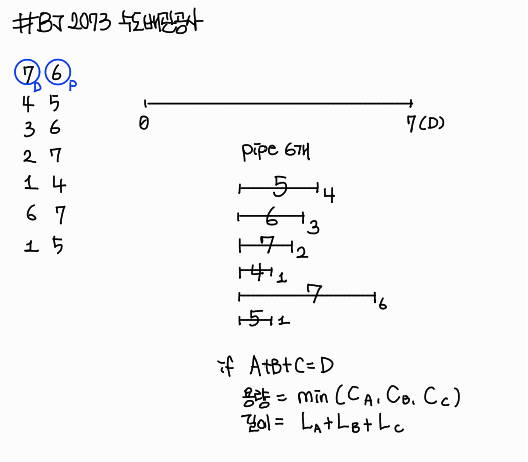 #BJ 2073 수도배관공사
7D 6P
4 5
3 6
2 7
1 4
6 7
1 5
0 7(D)
pipe 6개
5 4
6 3
7 2
4 1
7 6
5 1
if A+B+C=D
용량 = min (CA, CB, CC)
길이 = LA+LB+LC